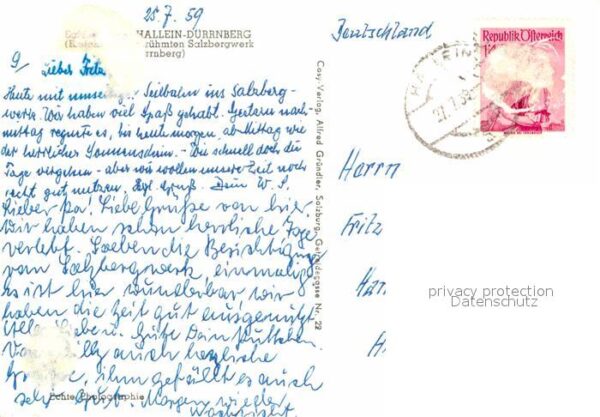 25.7.59
HALLEIN-DÜRRNBERG
rühmten Salzbergwerk
rrnberg)
9/ Lieber Fritz
Heute mit Seilbahn ins Salzberg-
werk. Wir haben viel Spaß gehabt. Gestern nach-
mittag regnete es, bis heute morgen, ab Mittag wie
der herrlicher Sonnenschein. - Wie schnell doch die
Tage vergehen - aber wir wollen unsere Zeit noch
recht gut nutzen. Hzl. Gruß. Dein W. S.
Lieber Pa! Liebe Grüße von hier.
Wir haben schon herrliche Tage
verlebt. Soeben die Besichtigung
vom Salzbergwerk, einmalig
es ist hier wunderbar wir
haben die Zeit gut ausgenutzt
Alles Liebe u. Gute Dein
Von Willy auch herzliche
Grüße, ihm gefällt es auch
sehr gut. Morgen wieder
Echte Photographie
Cosy-Verlag, Alfred Gründler, Salzburg, Getreidegasse Nr. 22
Deutschland
Republik Österreich
HALLEIN
27.7.59
Herrn
Fritz
Han
H.
privacy protection
Datenschutz